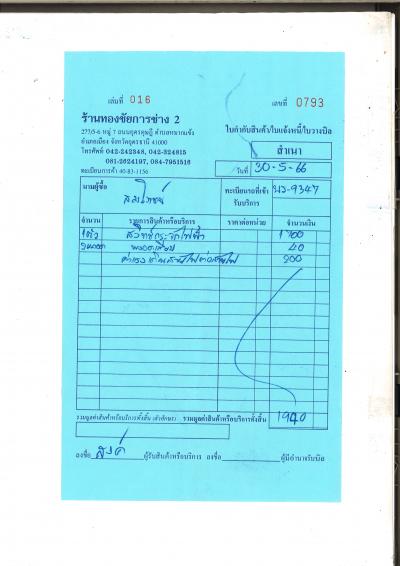 เล่มที่ 016
เลขที่ 0793
ร้านทองชัยการช่าง 2
277/5-6 หมู่ 7 ถนนอุดรดุษฎี ตำบลหมากแข้ง
อำเภอเมือง จังหวัดอุดรธานี 41000
โทรศัพท์ 042-242348, 042-324815
081-2624197, 084-7951516
ทะเบียนการค้า 40-83-1156
ใบกำกับสินค้า/ใบแจ้งหนี้/ใบวางบิล
สำเนา
วันที่ 30-5-66
นามผู้ซื้อ
ทะเบียนรถที่เข้า
รับบริการ
-9347
จำนวน รายการสินค้าหรือบริการ ราคาต่อหน่วย จำนวนเงิน
1 ตัว สวิทช์กระจกไฟฟ้า 1700
40
200
รวมมูลค่าสินค้าหรือบริการทั้งสิ้น (ตัวอักษร) รวมมูลค่าสินค้าหรือบริการทั้งสิ้น 1940
ลงชื่อ ผู้รับสินค้าหรือบริการ ลงชื่อ ผู้มีอำนาจรับบิล